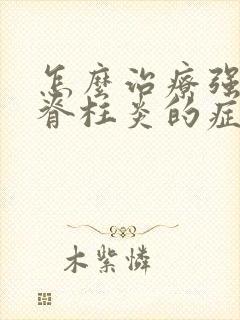 怎麼治療强
脊柱炎的症
木紫憐